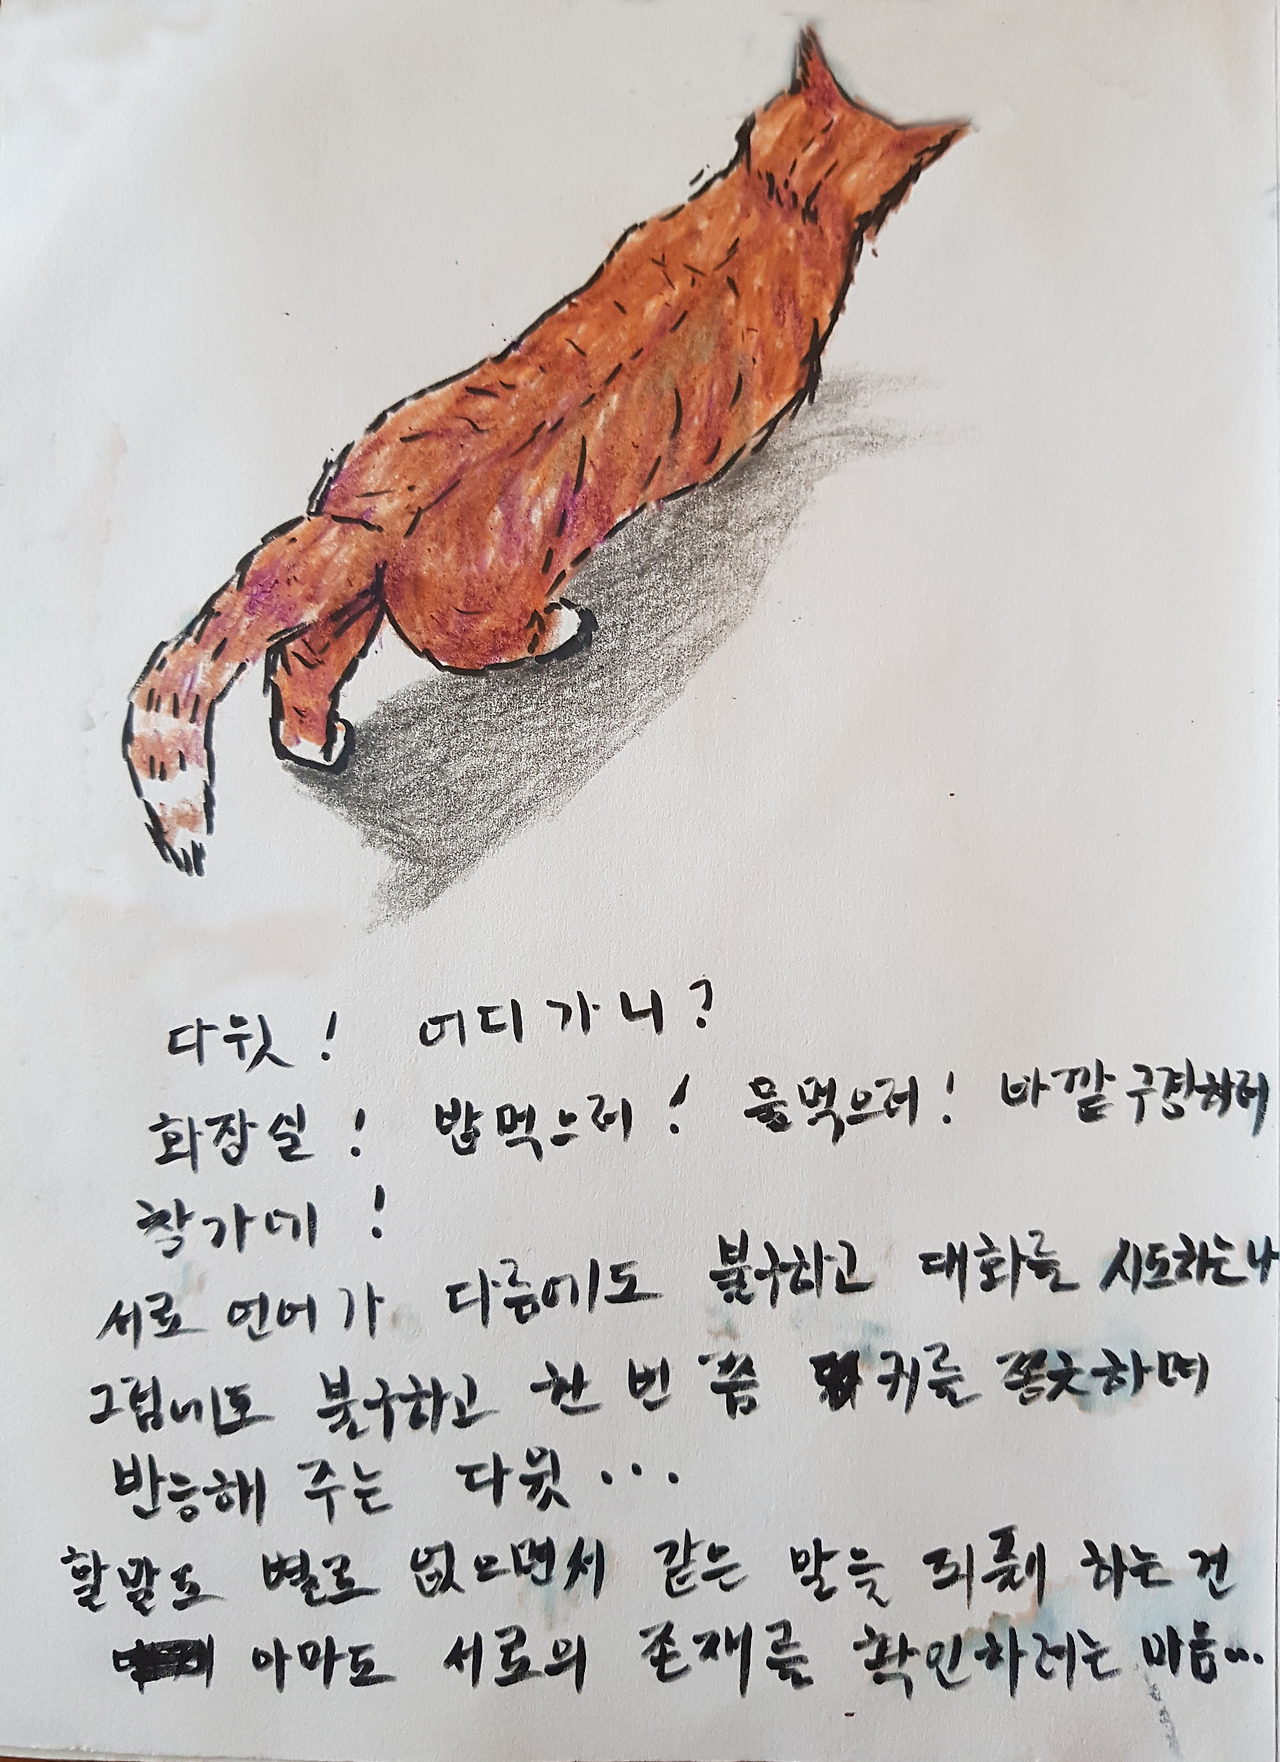 다윗! 어디 가니?
화장실! 밥먹으러! 물먹으러! 바깥구경하러
창가에!
서로 언어가 다름에도 불구하고 대화를 시도하는 나
그럼에도 불구하고 한 번 쯤 귀를 쫑긋하며
반응해 주는 다윗...
할말도 별로 없으면서 같은 말을 되풀이 하는 건
아마도 서로의 존재를 확인하려는 마음...